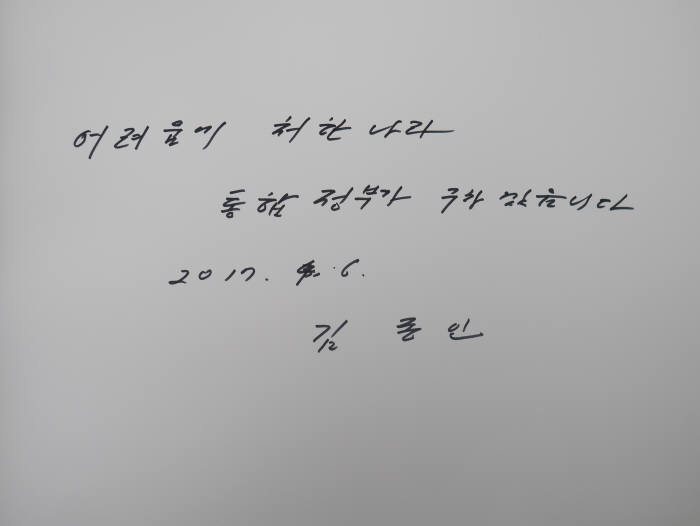 어려움에 처한 나라
통합 정부가 구하겠읍니다
2017. 6.
김 종 인